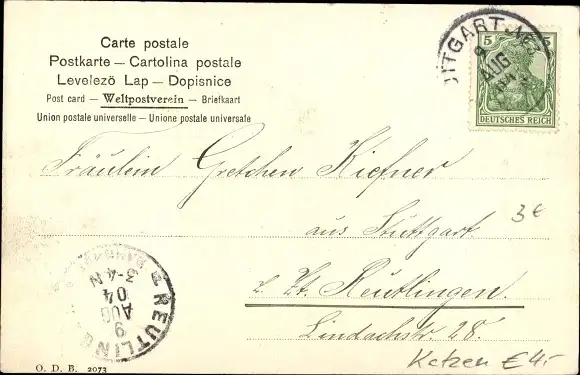 Carte postale
Postkarte — Cartolina postale
Levelezö Lap — Dopisnice
Post card — Weltpostverein — Briefkaart
Union postale universelle — Unione postale universale
5 5
DEUTSCHES REICH
UTTGART
9
AUG
Fräulein Gretchen Kiefner
aus Stuttgart.
3€
z. Zt. Reutlingen.
Lindachstr. 28.
REUTLING
3-4N
04
AUG
9
Katzen € 4,-
O. D. B. 2073